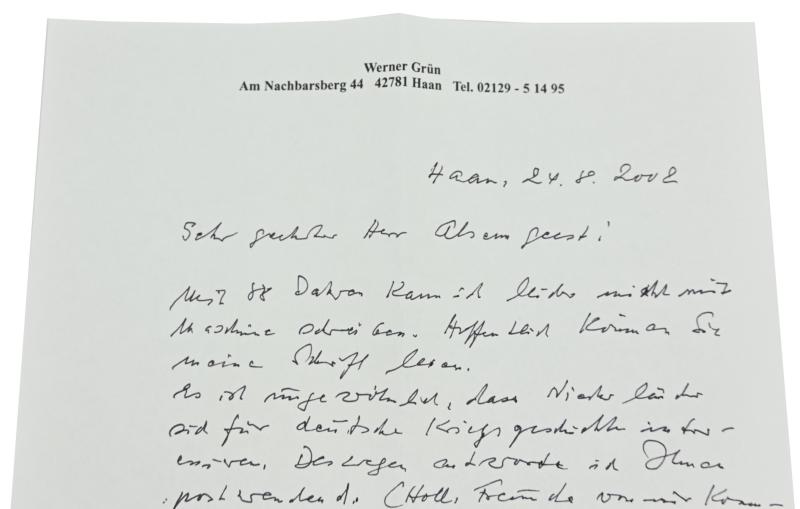 Werner Grün
Am Nachbarsberg 44 42781 Haan Tel. 02129 - 5 14 95
Haan, 24. 8. 2002
Sehr geehrter Herr Alsemgeest!
Mit 88 Jahren kann ich leider nicht mit
Maschine schreiben. Hoffentlich können Sie
meine Schrift lesen.
Es ist ungewöhnlich, dass Niederländer
sich für deutsche Kriegsgeschichte inter-
essieren. Deswegen antworte ich Ihnen
postwendend. (Holl. Freunde von mir komm-